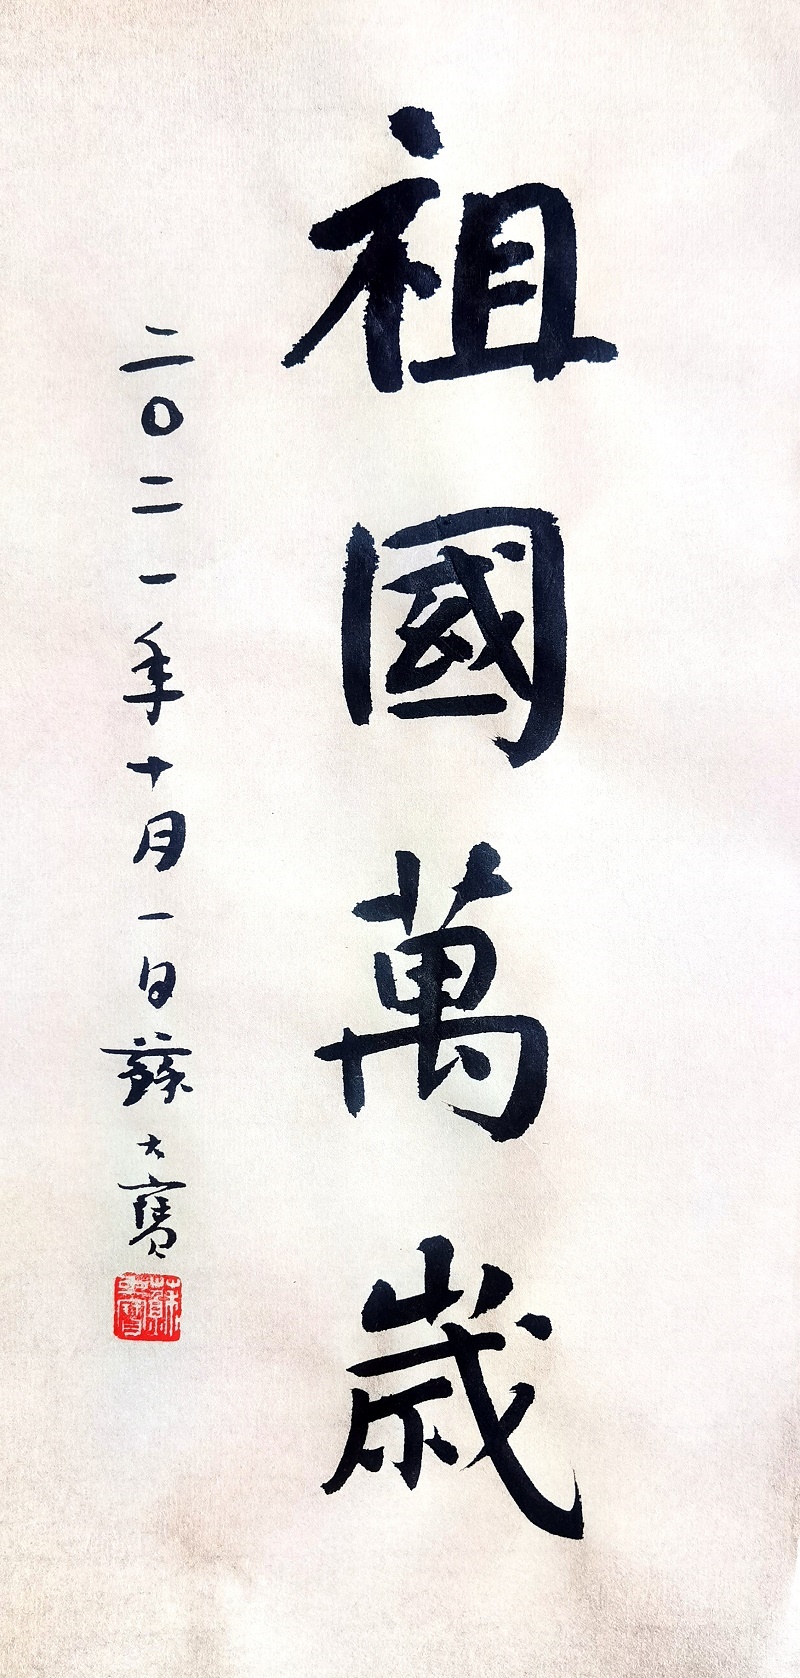 祖國萬歲
二〇二一年十月一日蘇大寶